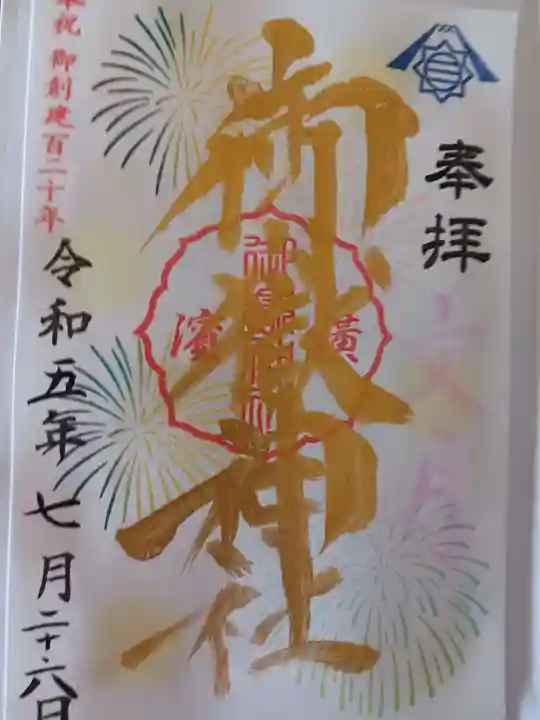 奉拝
御嶽神社
横濱
奉祝 御創建百二十年
令和五年七月二十六日